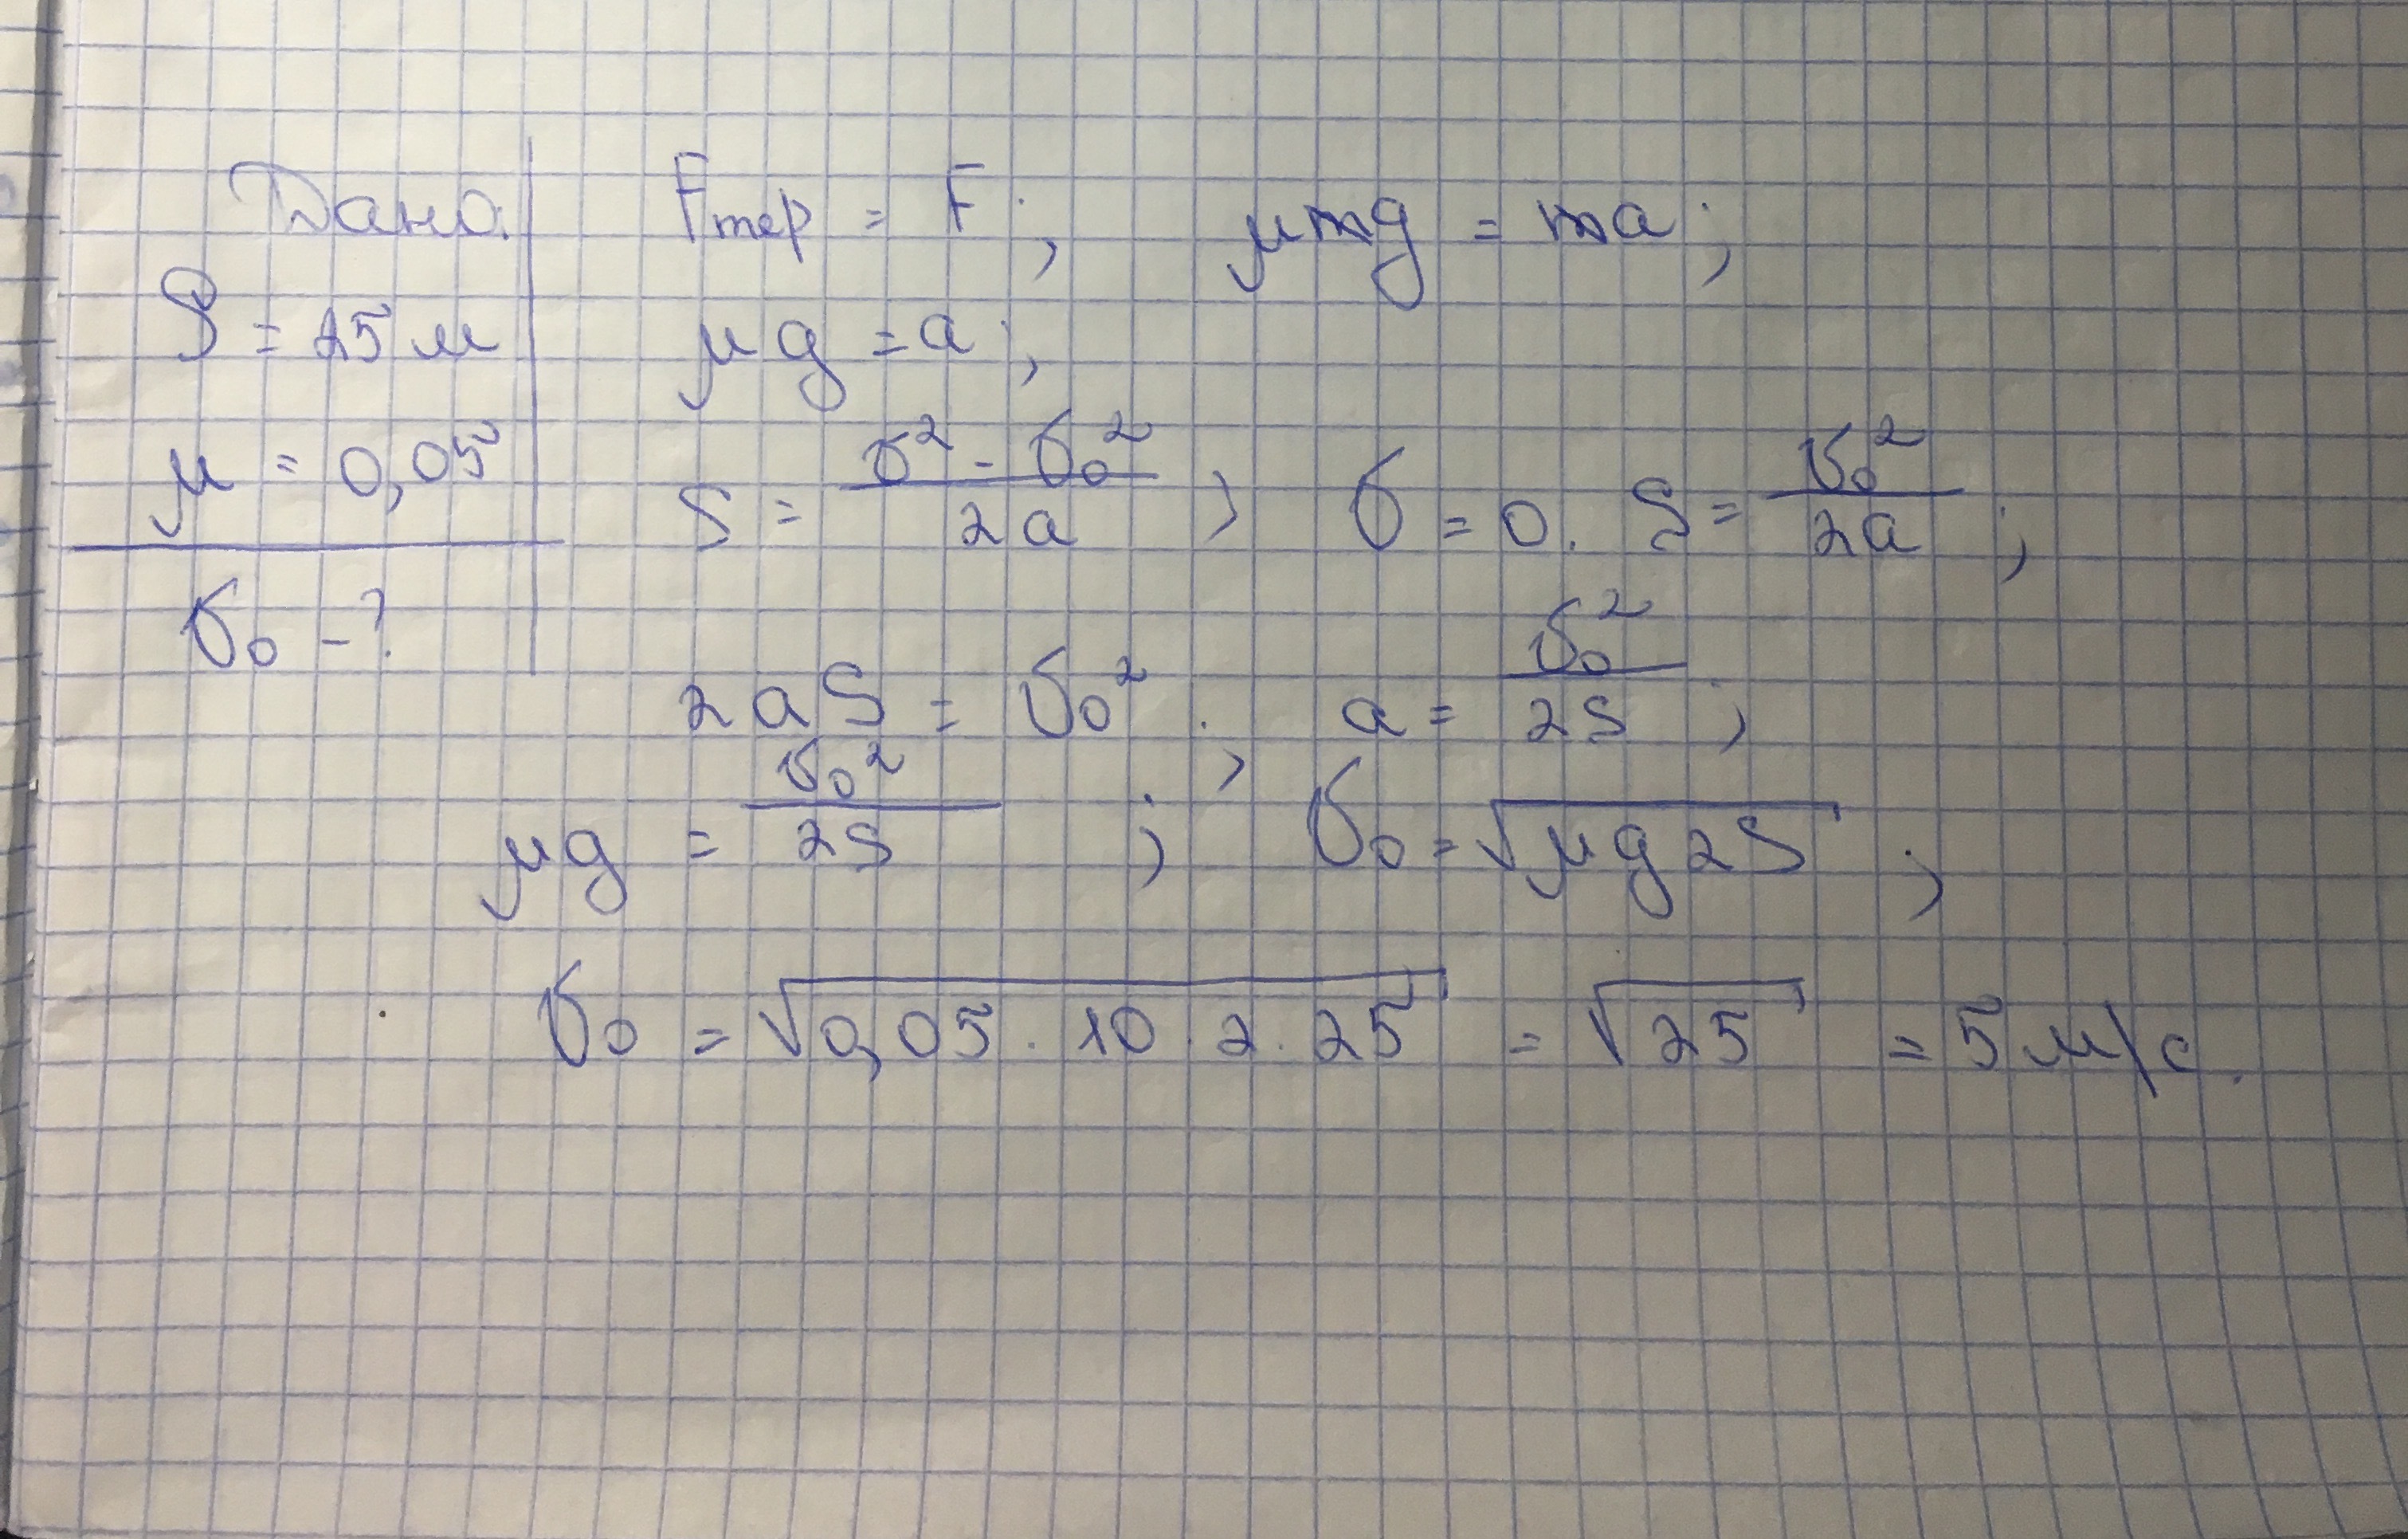 Дано:
S = 25 м
μ = 0,05
v₀ - ?
Fтер = F; μmg = ma;
μg = a;
S = (v² - v₀²)/2a; v = 0. S = v₀²/2a;
2aS = v₀²; a = v₀²/2S;
μg = v₀²/2S; v₀ = √(μg2S);
v₀ = √(0,05 · 10 · 2 · 25) = √25 = 5 м/с.